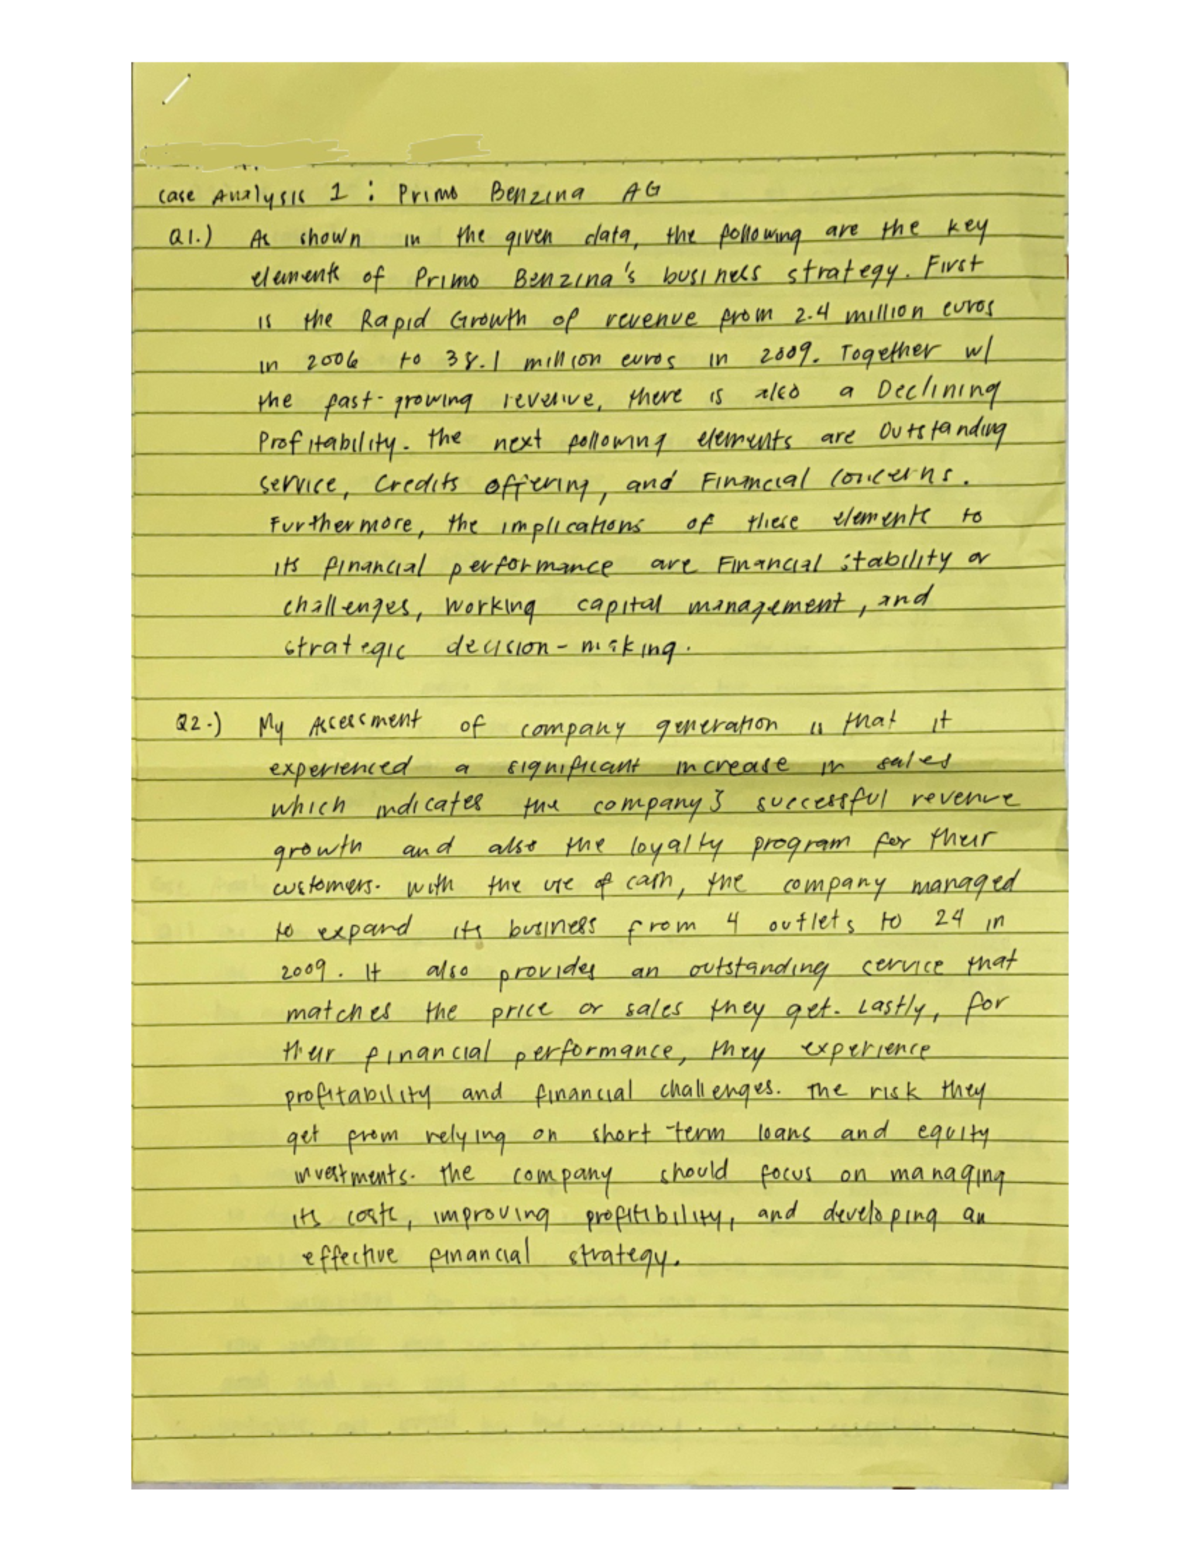 Case Analysis 1 : Primo Benzina AG
Q1.) As shown in the given data, the following are the key
elements of Primo Benzina's business strategy. First
is the Rapid Growth of revenue from 2.4 million euros
in 2006 to 38.1 million euros in 2009. Together w/
the fast-growing revenue, there is also a Declining
Profitability. The next following elements are Outstanding
service, Credits offering, and Financial Concerns.
Furthermore, the implications of these elements to
its financial performance are Financial stability or
challenges, working capital management, and
strategic decision-making.
Q2.) My Assessment of company generation is that it
experienced a significant increase in sales
which indicates the company's successful revenue
growth and also the loyalty program for their
customers. With the use of cash, the company managed
to expand its business from 4 outlets to 24 in
2009. It also provides an outstanding service that
matches the price or sales they get. Lastly, for
their financial performance, they experience
profitability and financial challenges. The risk they
get from relying on short term loans and equity
investments. The company should focus on managing
its costs, improving profitibility, and developing an
effective financial strategy.